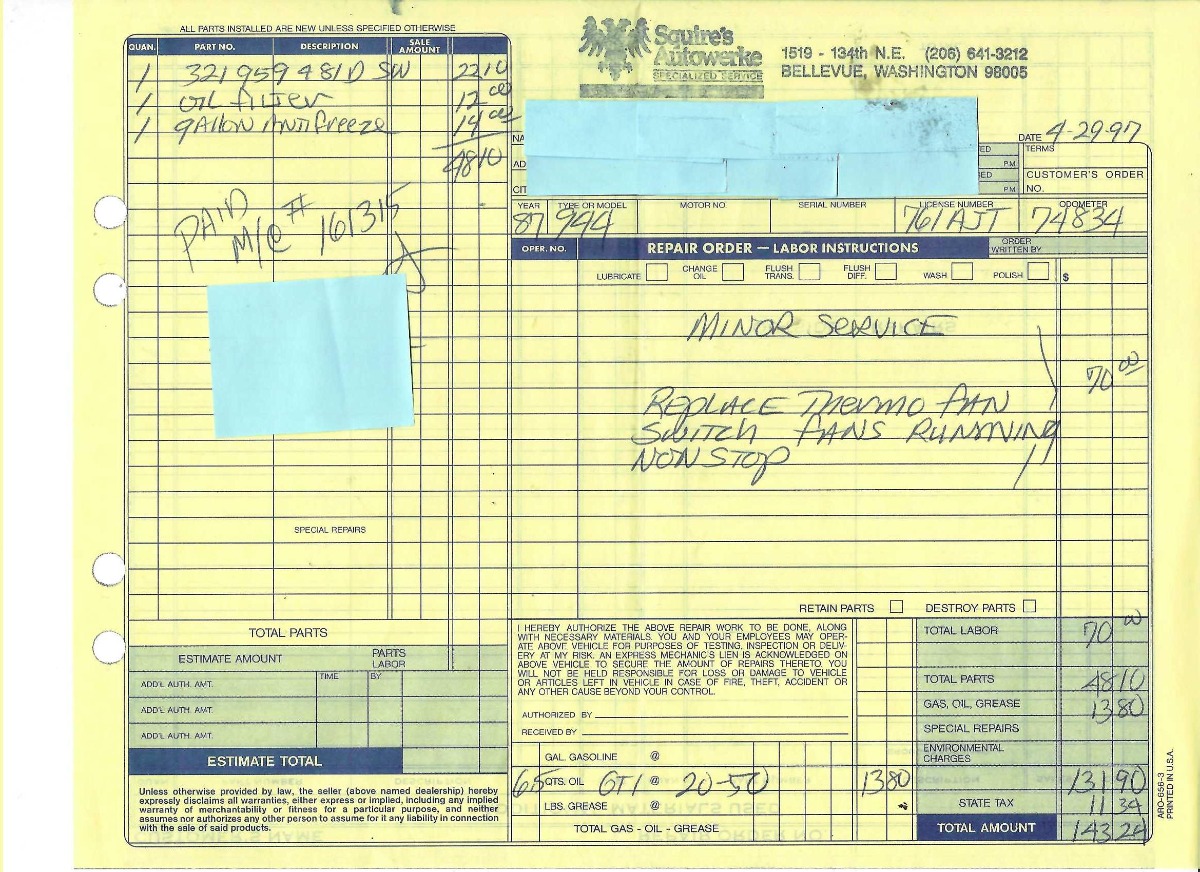 ALL PARTS INSTALLED ARE NEW UNLESS SPECIFIED OTHERWISE
QUAN. PART NO. DESCRIPTION SALE AMOUNT
1 321 959 481 D SW 22 10
1 OIL FILTER 12 00
1 GALLON ANTIFREEZE 14 00
48 10
PAID
M/C # 161315
SPECIAL REPAIRS
TOTAL PARTS
ESTIMATE AMOUNT PARTS LABOR
ADD'L AUTH. AMT. TIME BY
ADD'L AUTH. AMT.
ADD'L AUTH. AMT.
ESTIMATE TOTAL
Unless otherwise provided by law, the seller (above named dealership) hereby
expressly disclaims all warranties, either express or implied, including any implied
warranty of merchantability or fitness for a particular purpose, and neither
assumes nor authorizes any other person to assume for it any liability in connection
with the sale of said products.
Squire's
Autowerke
SPECIALIZED SERVICE
1519 - 134th N.E. (206) 641-3212
BELLEVUE, WASHINGTON 98005
NA
DATE 4-29-97
AD
ED PM
TERMS
CIT
ED PM
CUSTOMER'S ORDER NO.
YEAR TYPE OR MODEL MOTOR NO. SERIAL NUMBER LICENSE NUMBER ODOMETER
87 944 761AJT 74834
OPER. NO. REPAIR ORDER — LABOR INSTRUCTIONS ORDER WRITTEN BY
LUBRICATE CHANGE OIL FLUSH TRANS. FLUSH DIFF. WASH POLISH $
MINOR SERVICE
70 00
REPLACE THERMO FAN
SWITCH FANS RUNNNING
NON STOP
RETAIN PARTS DESTROY PARTS
I HEREBY AUTHORIZE THE ABOVE REPAIR WORK TO BE DONE, ALONG
WITH NECESSARY MATERIALS. YOU AND YOUR EMPLOYEES MAY OPER-
ATE ABOVE VEHICLE FOR PURPOSES OF TESTING, INSPECTION OR DELIV-
ERY AT MY RISK. AN EXPRESS MECHANIC'S LIEN IS ACKNOWLEDGED ON
ABOVE VEHICLE TO SECURE THE AMOUNT OF REPAIRS THERETO. YOU
WILL NOT BE HELD RESPONSIBLE FOR LOSS OR DAMAGE TO VEHICLE
OR ARTICLES LEFT IN VEHICLE IN CASE OF FIRE, THEFT, ACCIDENT OR
ANY OTHER CAUSE BEYOND YOUR CONTROL.
AUTHORIZED BY
RECEIVED BY
GAL. GASOLINE @
6.5 QTS. OIL GTI @ 20-50 13 80
LBS. GREASE @
TOTAL GAS - OIL - GREASE
TOTAL LABOR 70 00
TOTAL PARTS 48 10
GAS, OIL, GREASE 13 80
SPECIAL REPAIRS
ENVIRONMENTAL CHARGES
131 90
STATE TAX 11 34
TOTAL AMOUNT 143 24
ARO-656-3
PRINTED IN U.S.A.